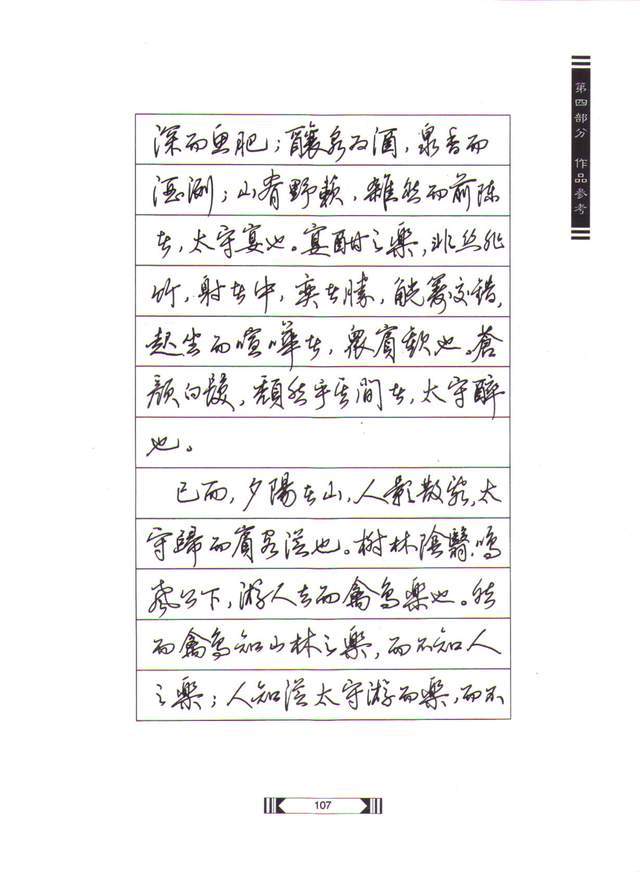 第四部分 作品参考
深而鱼肥；釀泉为酒，泉香而
酒洌；山肴野蔌，雜然而前陈
者，太守宴也。宴酣之樂，非丝非
竹，射者中，奕者勝，觥筹交错，
起坐而喧嘩者，衆賓歡也。蒼
颜白髮，頹然乎其間者，太守醉
也。
已而，夕陽在山，人影散乱，太
守歸而賓客從也。樹林陰翳，鸣
声上下，游人去而禽鸟樂也。然
而禽鸟知山林之樂，而不知人
之樂；人知從太守游而樂，而不
107